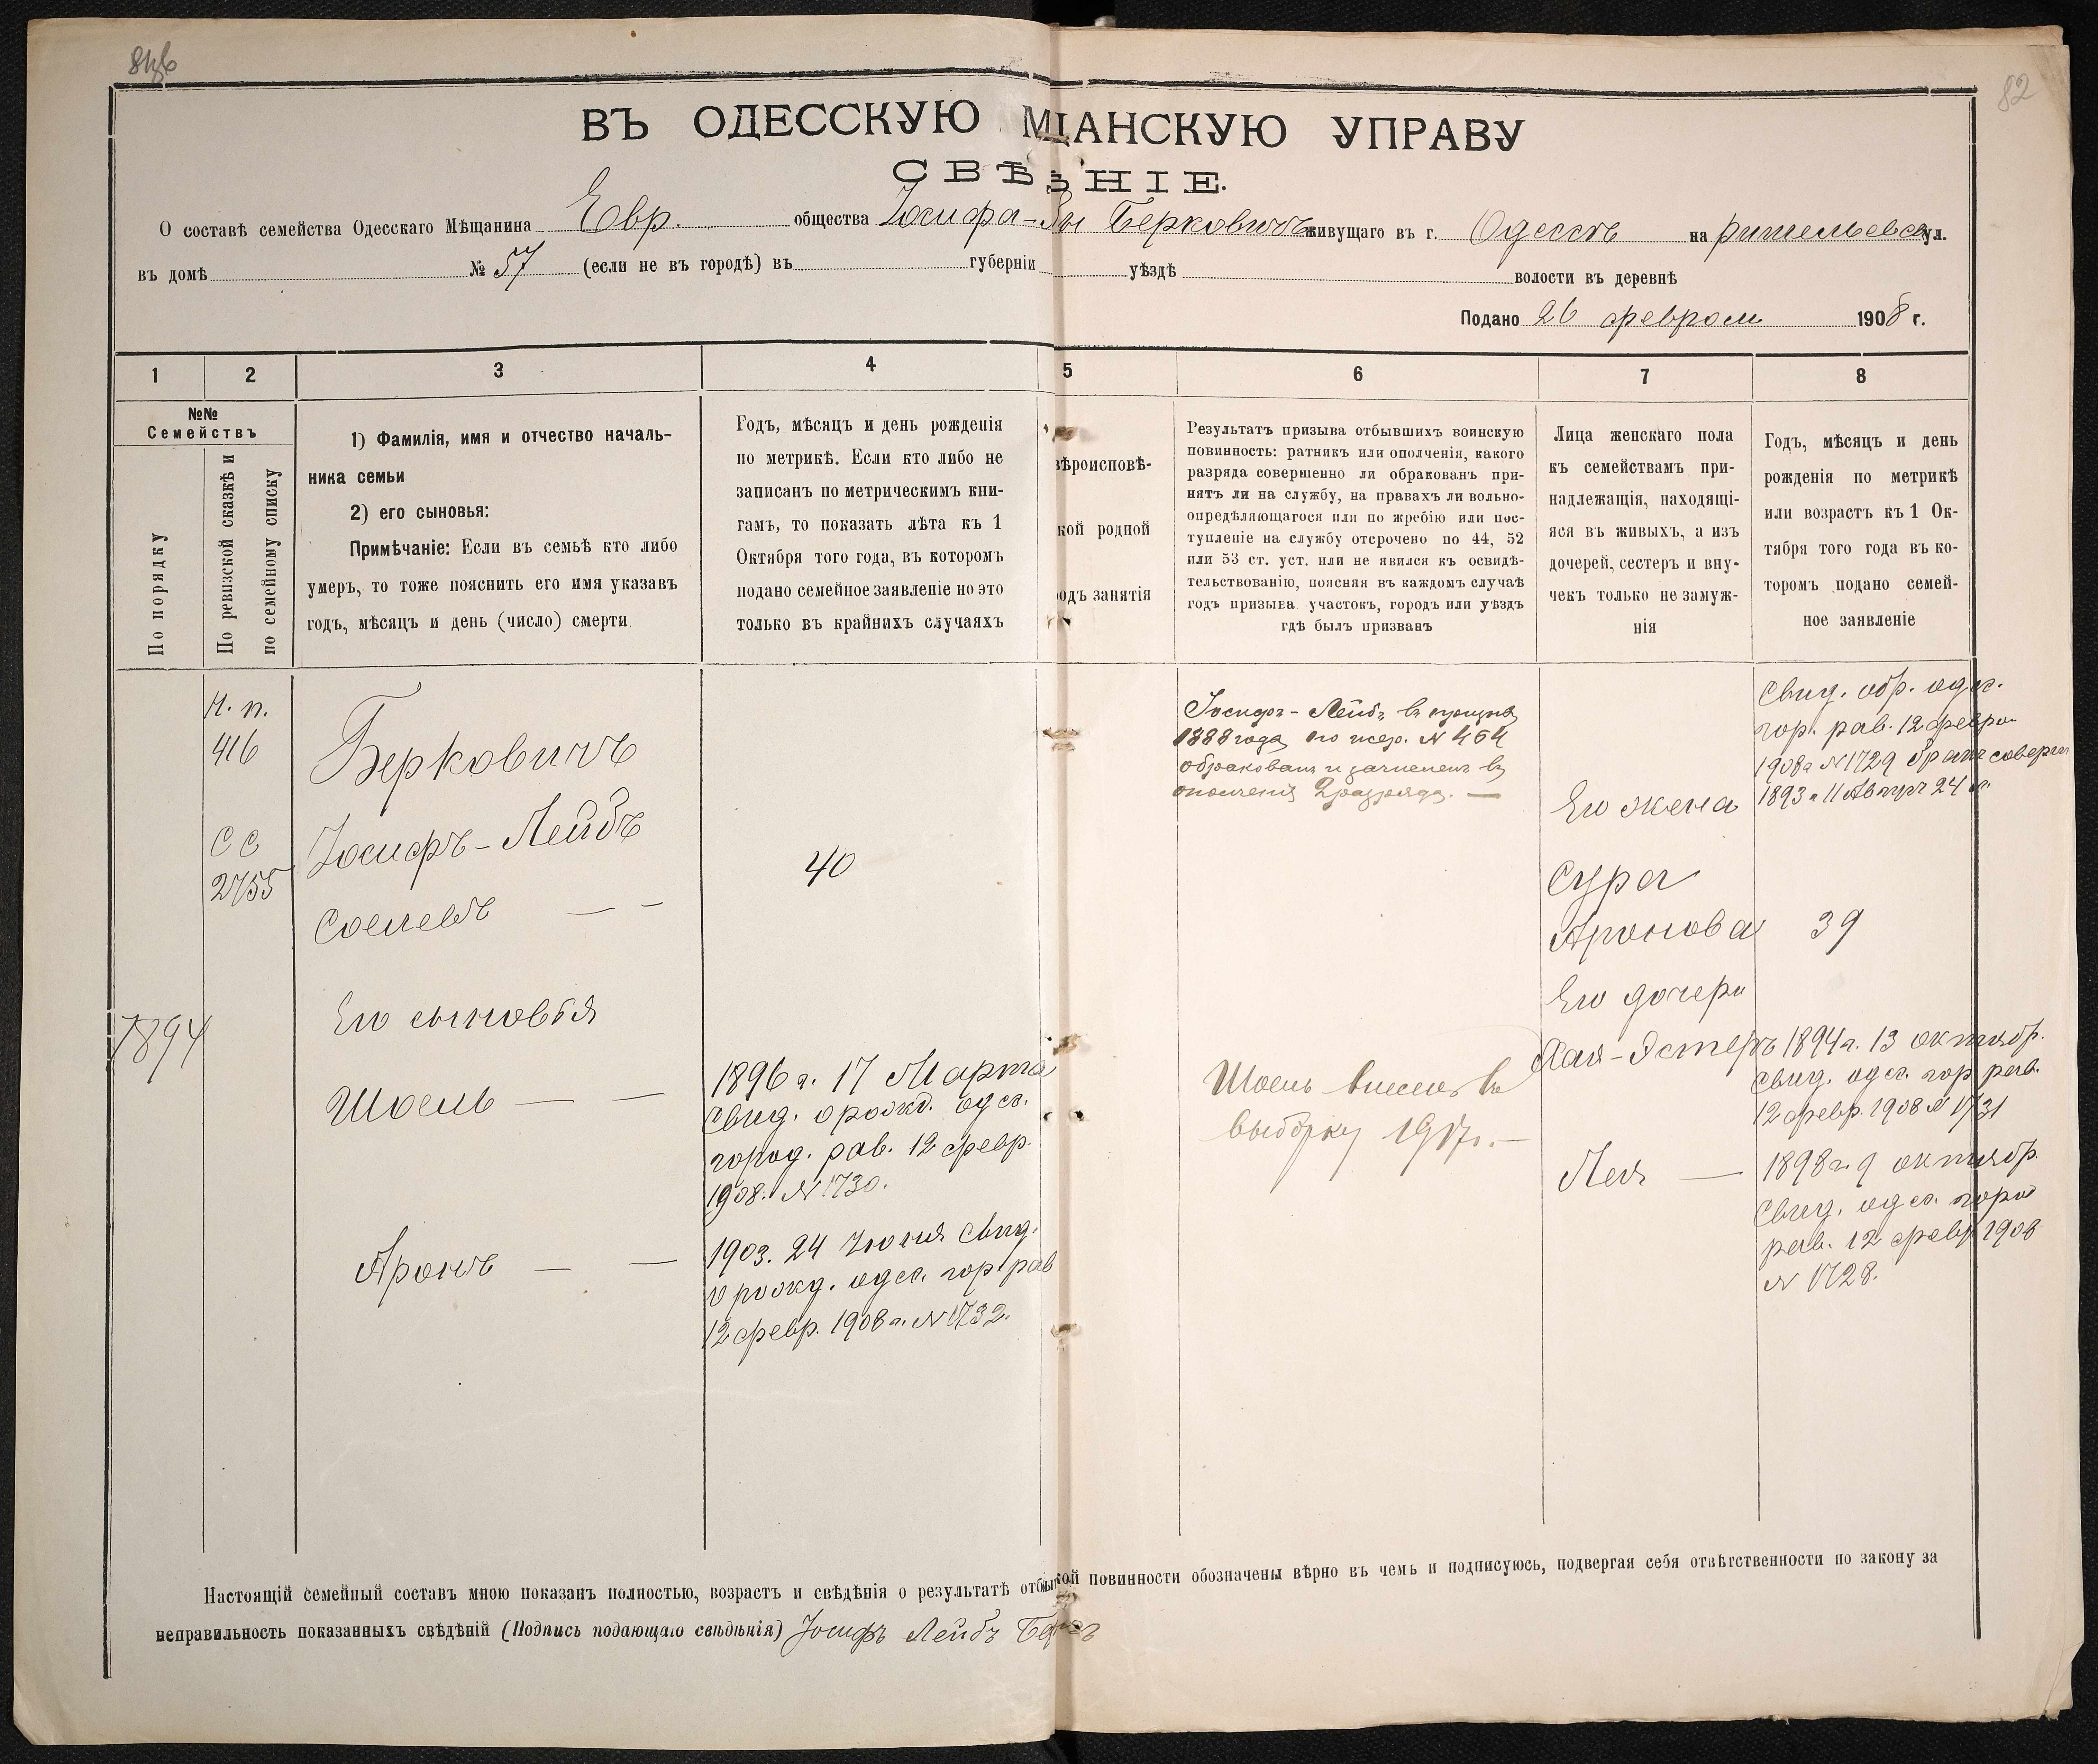 82
ВЪ ОДЕССКУЮ МѢЩАНСКУЮ УПРАВУ
СВѢ НІЕ.
О составѣ семейства Одесскаго Мѣщанина Евр. общества Іосифа- Берковичъ живущаго въ г. Одессѣ на ришельевск ул.
въ домѣ № 57 (если не въ городѣ) въ губерніи уѣздѣ волости въ деревнѣ
Подано 26 феврал 1908 г.
1 2 3 4 5 6 7 8
№№ Семействъ
По порядку
По ревизской сказкѣ и по семейному списку
1) Фамилія, имя и отчество началь-
ника семьи
2) его сыновья:
Примѣчаніе: Если въ семьѣ кто либо
умеръ, то тоже пояснить его имя указавъ
годъ, мѣсяцъ и день (число) смерти
Годъ, мѣсяцъ и день рожденія
по метрикѣ. Если кто либо не
записанъ по метрическимъ кни-
гамъ, то показать лѣта къ 1
Октября того года, въ которомъ
подано семейное заявленіе но это
только въ крайнихъ случаяхъ
вѣроисповѣ-
кой родной
одъ занятія
Результатъ призыва отбывшихъ воинскую
повинность: ратникъ или ополченія, какого
разряда совершенно ли обракованъ при-
нятъ ли на службу, на правахъ ли вольно-
опредѣляющагося или по жребію или пос-
тупленіе на службу отсрочено по 44, 52
или 53 ст. уст. или не явился къ освидѣ-
тельствованію, поясняя въ каждомъ случаѣ
годъ призыва участокъ, городъ или уѣздъ
гдѣ былъ призванъ
Лица женскаго пола
къ семействамъ при-
надлежащія, находящі-
яся въ живыхъ, а изъ
дочерей, сестеръ и вну-
чекъ только не замуж-
нія
Годъ, мѣсяцъ и день
рожденія по метрикѣ
или возрастъ къ 1 Ок-
тября того года въ ко-
торомъ подано семей-
ное заявленіе
Н. п.
416
С С
2755
1894
Берковичъ
Іосифъ-Лейбъ
40
Его сыновья
Шоель — —
1896 г. 17 Марта
Свид. о рожд. одес.
город. рав. 12 февр.
1908. № 1730.
Аронъ — —
1903. 24 Іюня Свид.
о рожд. одес. гор рав
12 февр. 1908 г. № 1732.
Іосифъ-Лейбъ въ призывѣ
1888 года по жер. № 464
обракованъ и зачисленъ въ
ополченіе 2 разряда. —
Шоель внесенъ въ
выборку 1917 г. —
Его жена
Сура
Аронова 39
Его дочери
Хая-Эстеръ 1894 г. 13 октябр.
Свид. одес. гор рав.
12 февр. 1908 № 1731
Лея — 1898 г. 9 октябр.
Свид. одес. горо
рав. 12 февр 1908
№ 1728.
Свид. обр. одес.
гор. рав. 12 февра
1908 г № 1729 бракъ соверш
1893 г 11 Август 24 л.
Настоящій семейный составъ мною показанъ полностью, возрастъ и свѣдѣнія о результатѣ отбы кой повинности обозначены вѣрно въ чемъ и подписуюсь, подвергая себя отвѣтственности по закону за
неправильность показанныхъ свѣдѣній (Подпись подающаго свѣдѣнія) Іосифъ Лейбъ